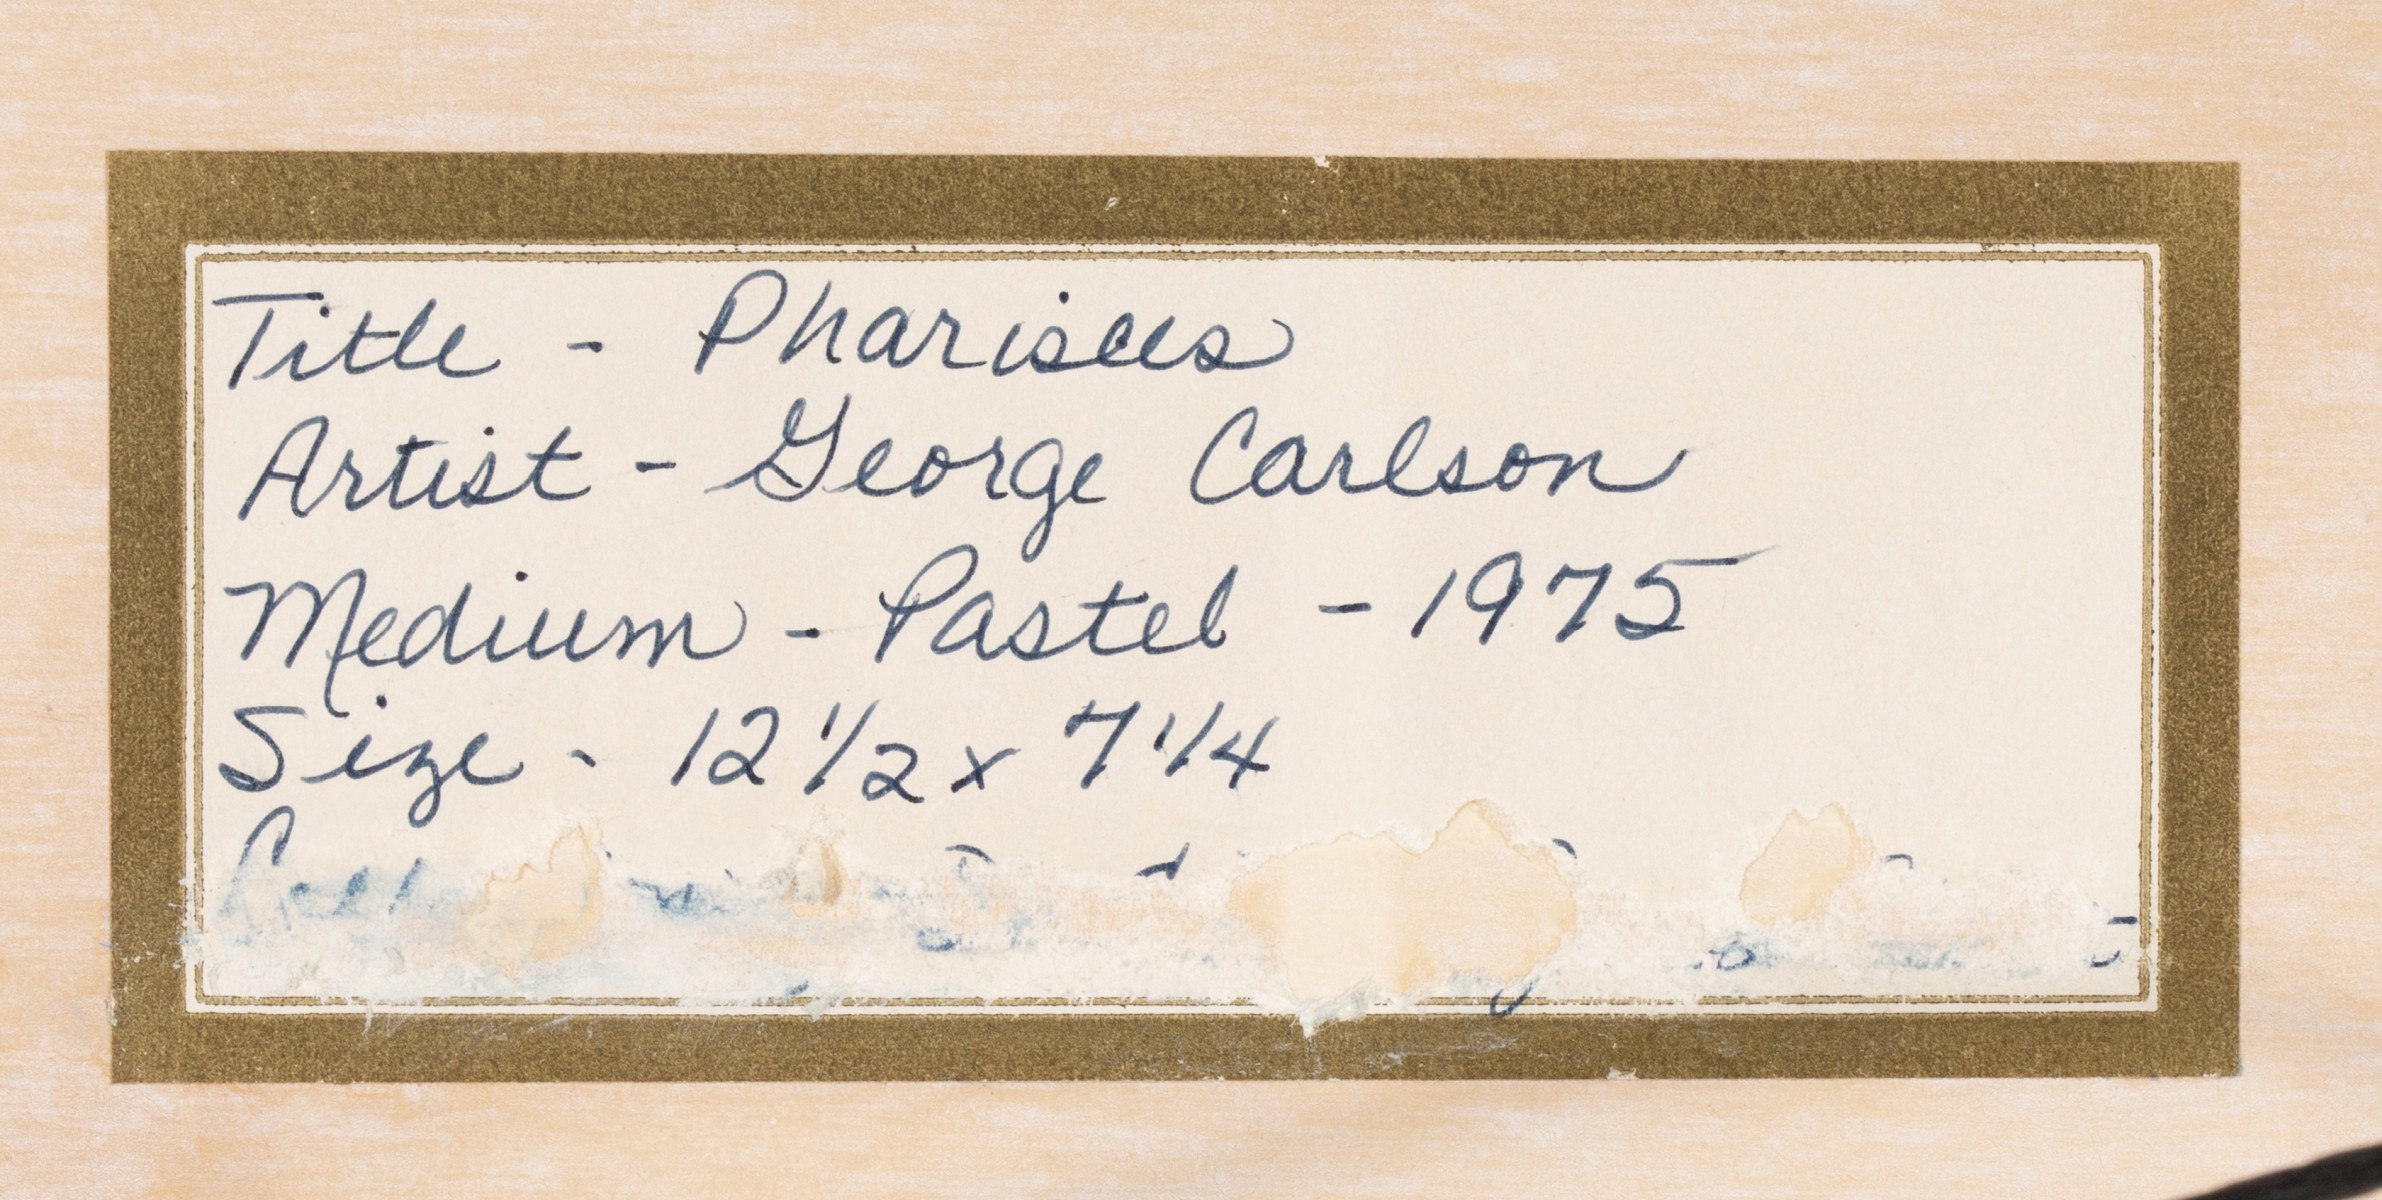 Title - Pharisees
Artist - George Carlson
Medium - Pastel - 1975
Size - 12 1/2 x 7 1/4